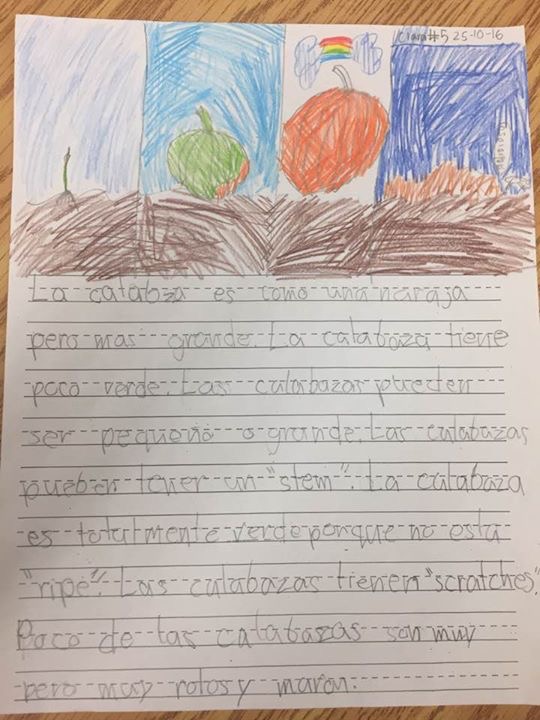 Clara #5 25-10-16
La calabza es como una naraja
pero mas grande. La calabaza tiene
poco verde. Las calabazas pueden
ser pequeño o grande. Las calabazas
pueben tener un "stem". La calabaza
es totalmente verde porque no esta
"ripe". Las calabazas tienen "scratches".
Poco de las calabazas son muy
pero muy rotos y maron.